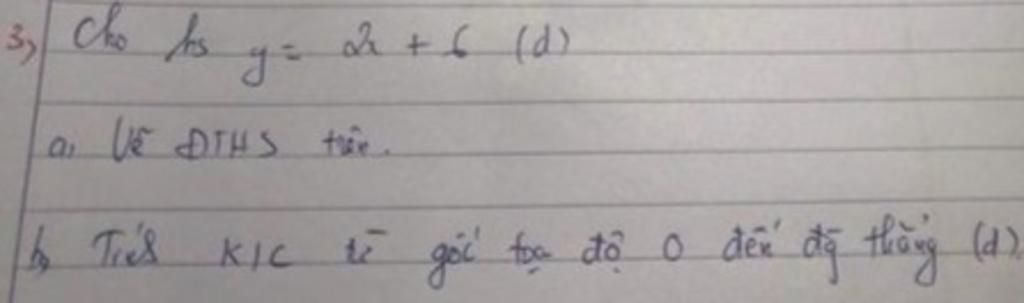 3, Cho hs y = 2x + 6 (d)
a, Vẽ ĐTHS trên.
b, Tính K/C từ gốc toạ độ O đến đg thẳng (d).